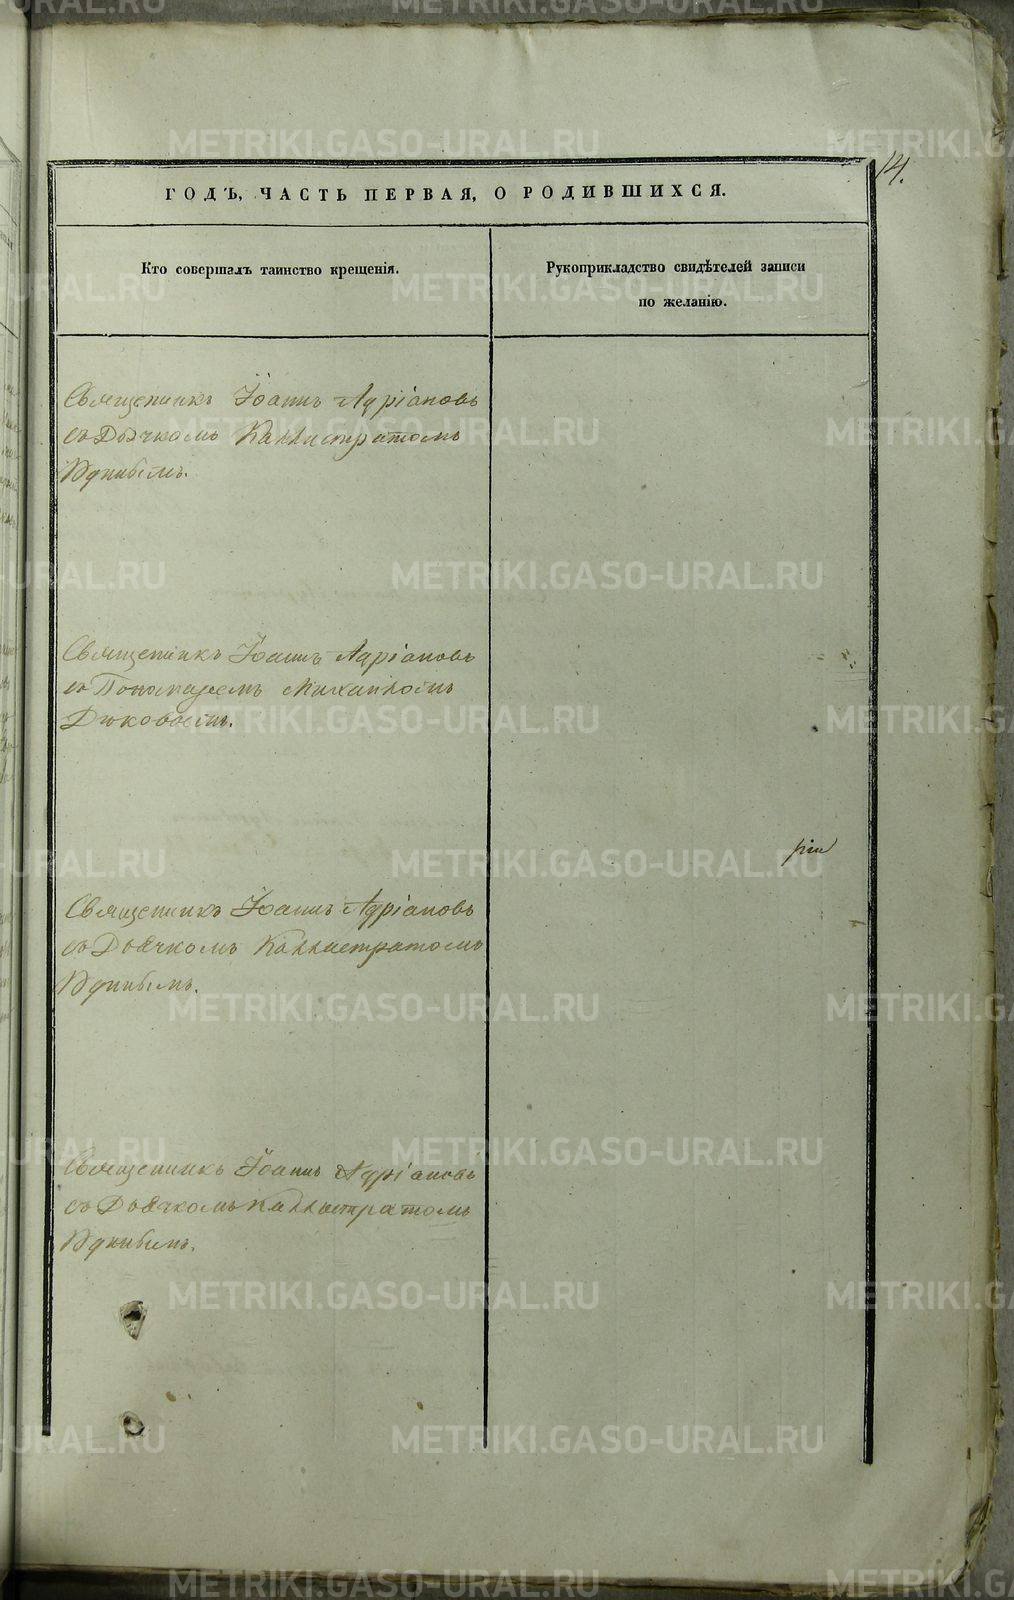 14.
ГОДЪ, ЧАСТЬ ПЕРВАЯ, О РОДИВШИХСЯ.
Кто совершалъ таинство крещенія.
Рукоприкладство свидѣтелей записи
по желанію.
Священникъ Іоаннъ Адріановъ
съ Дьячкомъ Каллистратомъ
Священникъ Іоаннъ Адріановъ
съ Пономаремъ Михаиломъ
Дюковымъ.
Священникъ Іоаннъ Адріановъ
съ Дьячкомъ Каллистратомъ
Священникъ Іоаннъ Адріановъ
съ Дьячкомъ Каллистратомъ
METRIKI.GASO-URAL.RU